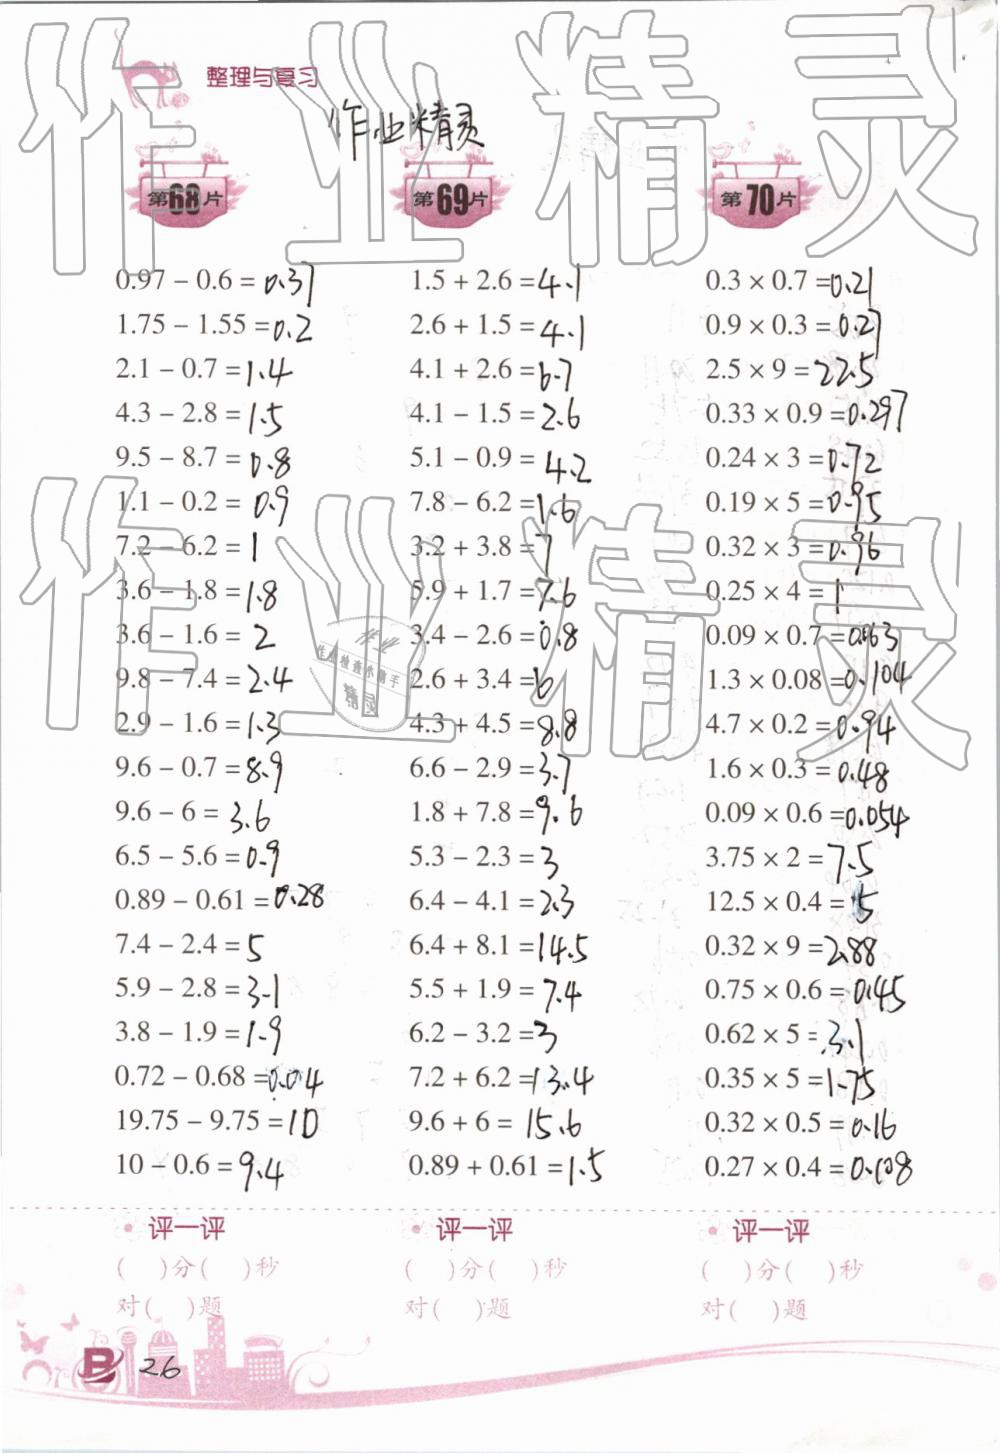 整理与复习
作业精灵
第68片
0.97 − 0.6 = 0.37
1.75 − 1.55 = 0.2
2.1 − 0.7 = 1.4
4.3 − 2.8 = 1.5
9.5 − 8.7 = 0.8
1.1 − 0.2 = 0.9
7.2 − 6.2 = 1
3.6 − 1.8 = 1.8
3.6 − 1.6 = 2
9.8 − 7.4 = 2.4
2.9 − 1.6 = 1.3
9.6 − 0.7 = 8.9
9.6 − 6 = 3.6
6.5 − 5.6 = 0.9
0.89 − 0.61 = 0.28
7.4 − 2.4 = 5
5.9 − 2.8 = 3.1
3.8 − 1.9 = 1.9
0.72 − 0.68 = 0.04
19.75 − 9.75 = 10
10 − 0.6 = 9.4
评一评
( )分( )秒
对( )题
第69片
1.5 + 2.6 = 4.1
2.6 + 1.5 = 4.1
4.1 + 2.6 = 6.7
4.1 − 1.5 = 2.6
5.1 − 0.9 = 4.2
7.8 − 6.2 = 1.6
3.2 + 3.8 = 7
5.9 + 1.7 = 7.6
3.4 − 2.6 = 0.8
2.6 + 3.4 = 6
4.3 + 4.5 = 8.8
6.6 − 2.9 = 3.7
1.8 + 7.8 = 9.6
5.3 − 2.3 = 3
6.4 − 4.1 = 2.3
6.4 + 8.1 = 14.5
5.5 + 1.9 = 7.4
6.2 − 3.2 = 3
7.2 + 6.2 = 13.4
9.6 + 6 = 15.6
0.89 + 0.61 = 1.5
评一评
( )分( )秒
对( )题
第70片
0.3 × 0.7 = 0.21
0.9 × 0.3 = 0.27
2.5 × 9 = 22.5
0.33 × 0.9 = 0.297
0.24 × 3 = 0.72
0.19 × 5 = 0.95
0.32 × 3 = 0.96
0.25 × 4 = 1
0.09 × 0.7 = 0.063
1.3 × 0.08 = 0.104
4.7 × 0.2 = 0.94
1.6 × 0.3 = 0.48
0.09 × 0.6 = 0.054
3.75 × 2 = 7.5
12.5 × 0.4 = 5
0.32 × 9 = 2.88
0.75 × 0.6 = 0.45
0.62 × 5 = 3.1
0.35 × 5 = 1.75
0.32 × 0.5 = 0.16
0.27 × 0.4 = 0.108
评一评
( )分( )秒
对( )题
B 26
作业精灵
作业精灵